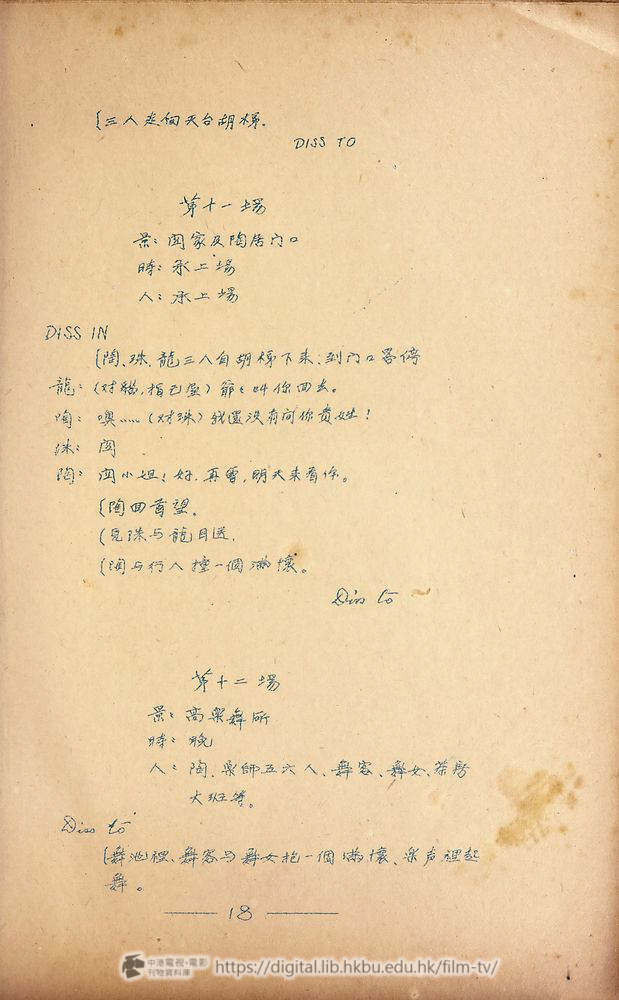 {三人走向天台胡梯.
DISS TO
第十一場
景：閔家及陶居门口
時：承上場
人：承上場
DISS IN
{陶、珠、龍三人自胡梯下来、到门口畧停
龍：(对貓,指已屋)爺々叫你回去。
陶：噢……(对珠)我還没有问你贵姓！
珠：闵
陶：闵小姐！好.再會,明天来看你。
{陶回首望.
(見珠与龍目送.
(陶与行人撞一個满懷。
Diss to
第十二場
景：高樂舞所
時：晚
人：陶.樂師五六人、舞客、舞女、茶房
大班等。
Diss to
{舞池裡、舞客与舞女抱一個满懷、樂声裡起
舞。
18
中港電視・電影
刊物資料庫
https://digital.lib.hkbu.edu.hk/film-tv/